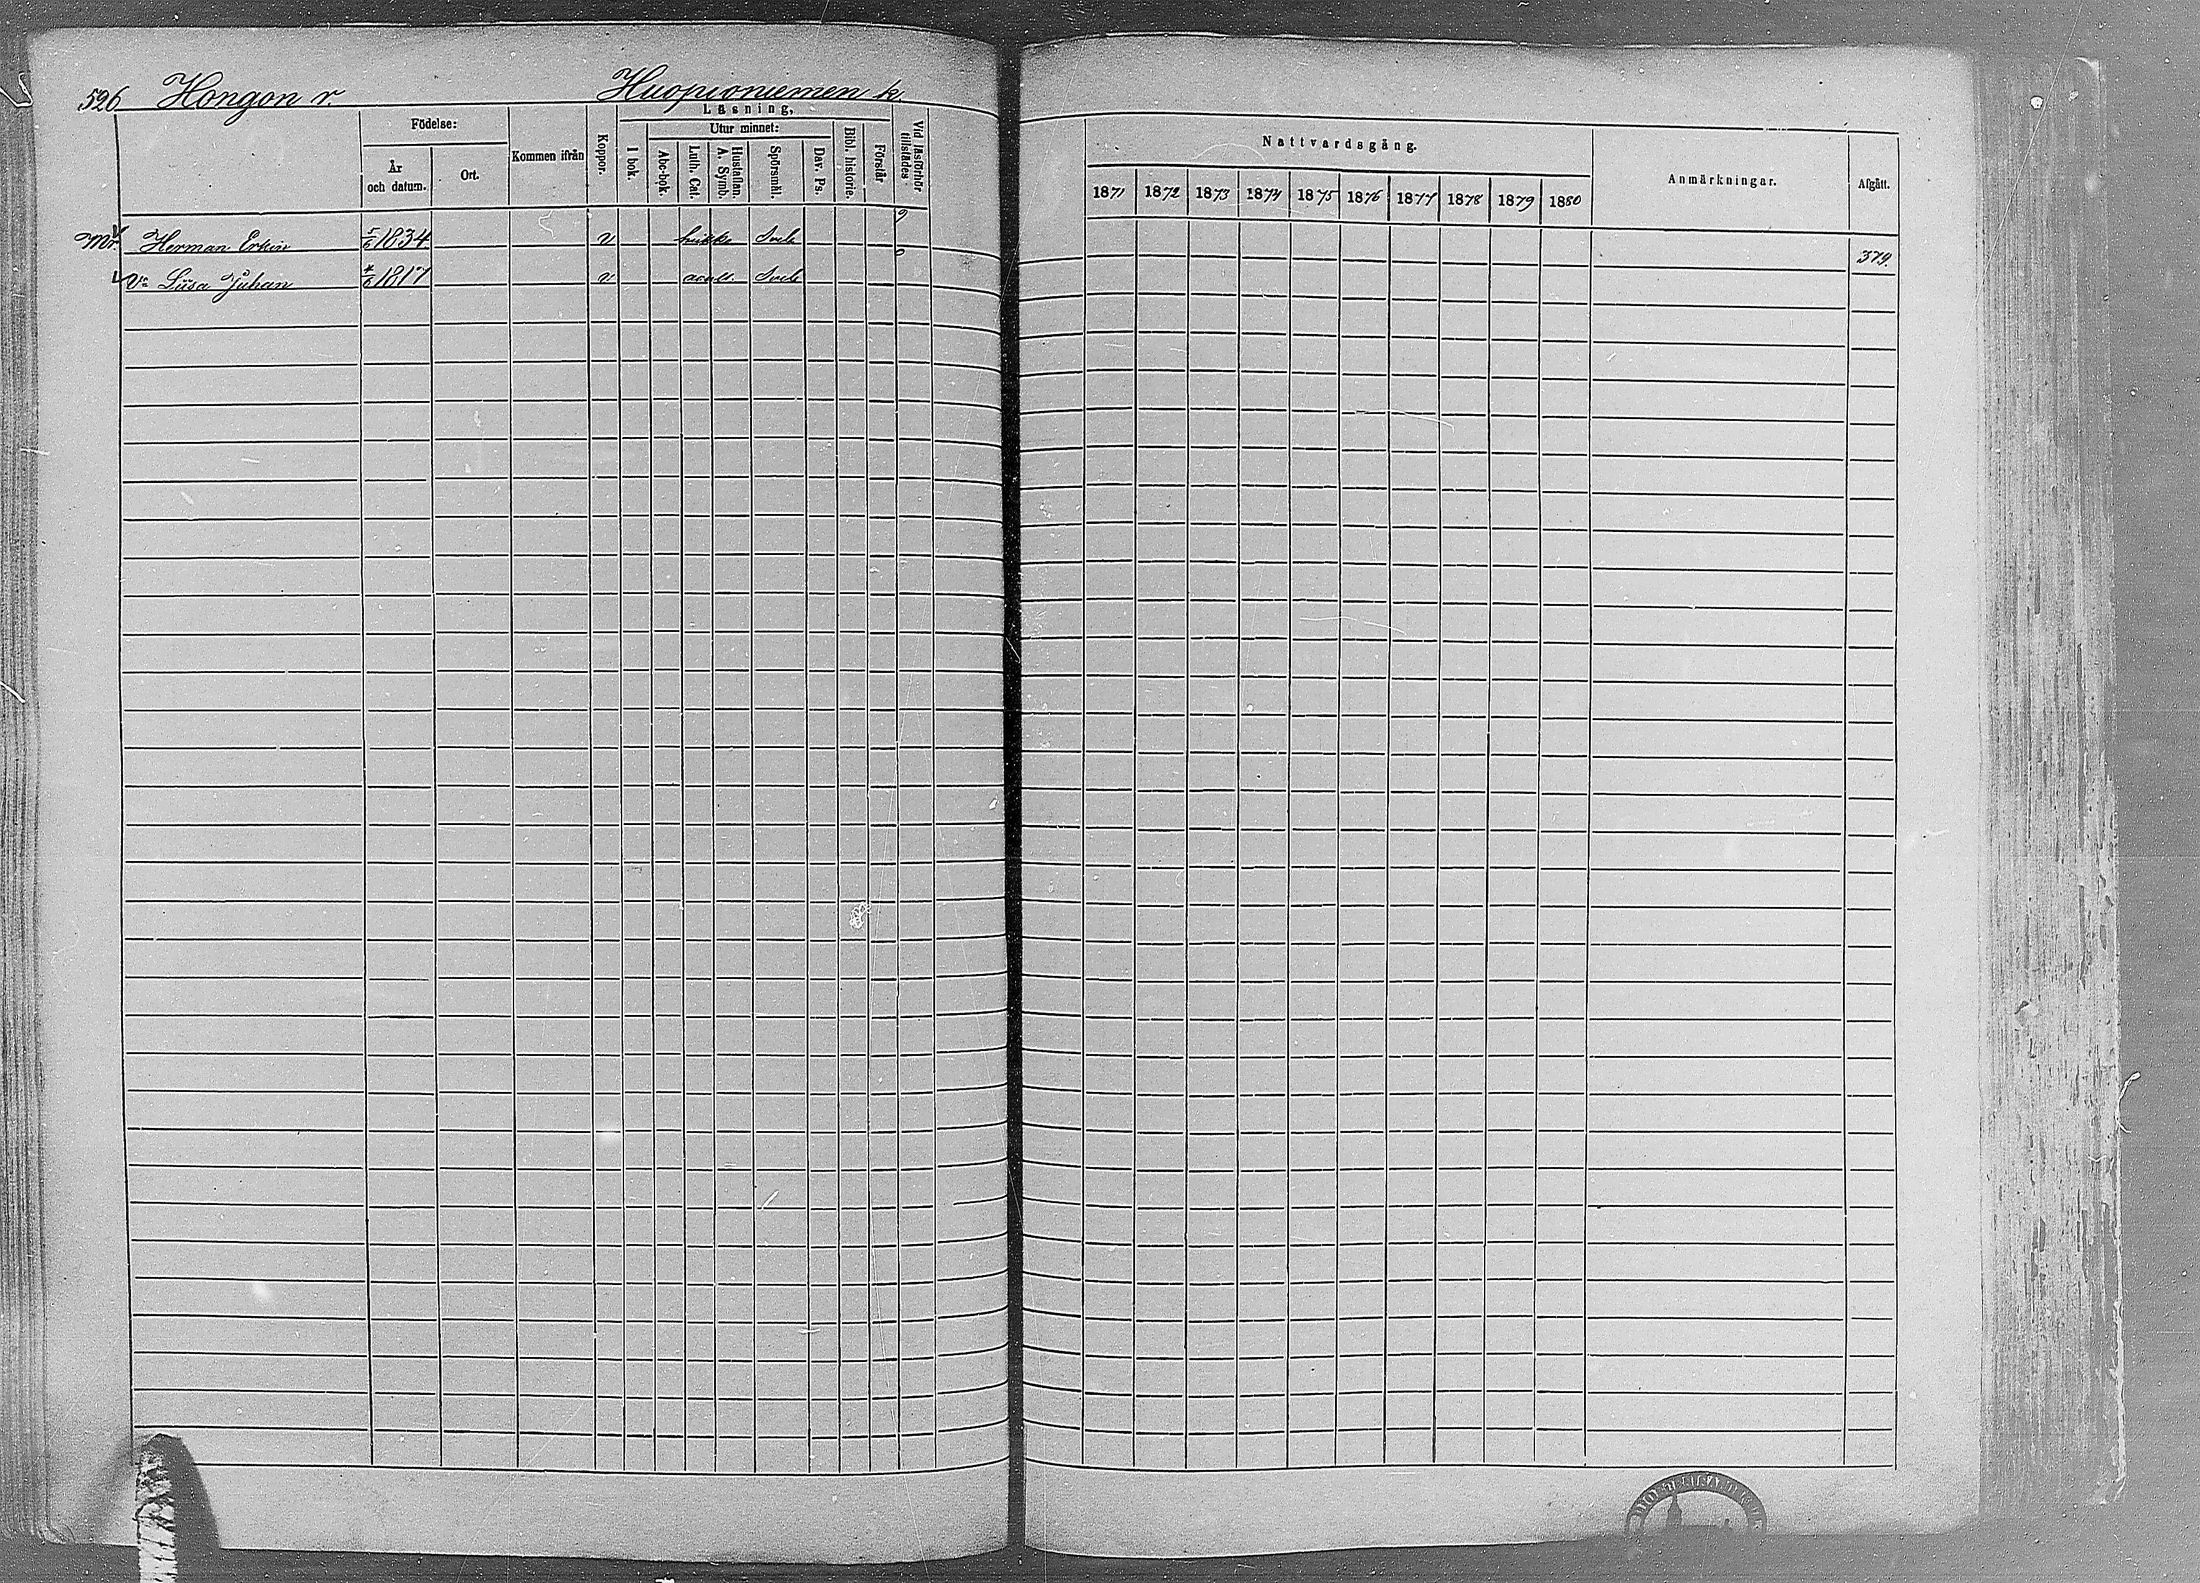 526 Hongon r. Huopioniemen k.
Läsning,
Födelse:
Utur minnet:
År och datum.
Ort.
Kommen ifrån
Koppor.
I bok.
Abc-bok.
Luth. Cat.
Hustaflan. A. Symb.
Spörsmål.
Dav. Ps.
Bibl. historie.
Förstår
Vid läsförhör tillstädes
Nattvardsgång.
1871 1872 1873 1874 1875 1876 1877 1878 1879 1880
Anmärkningar.
Afgått.
Mr. Herman Erkin 5/6 1834 v
379.
Liisa Juhan 4/6 1817 v